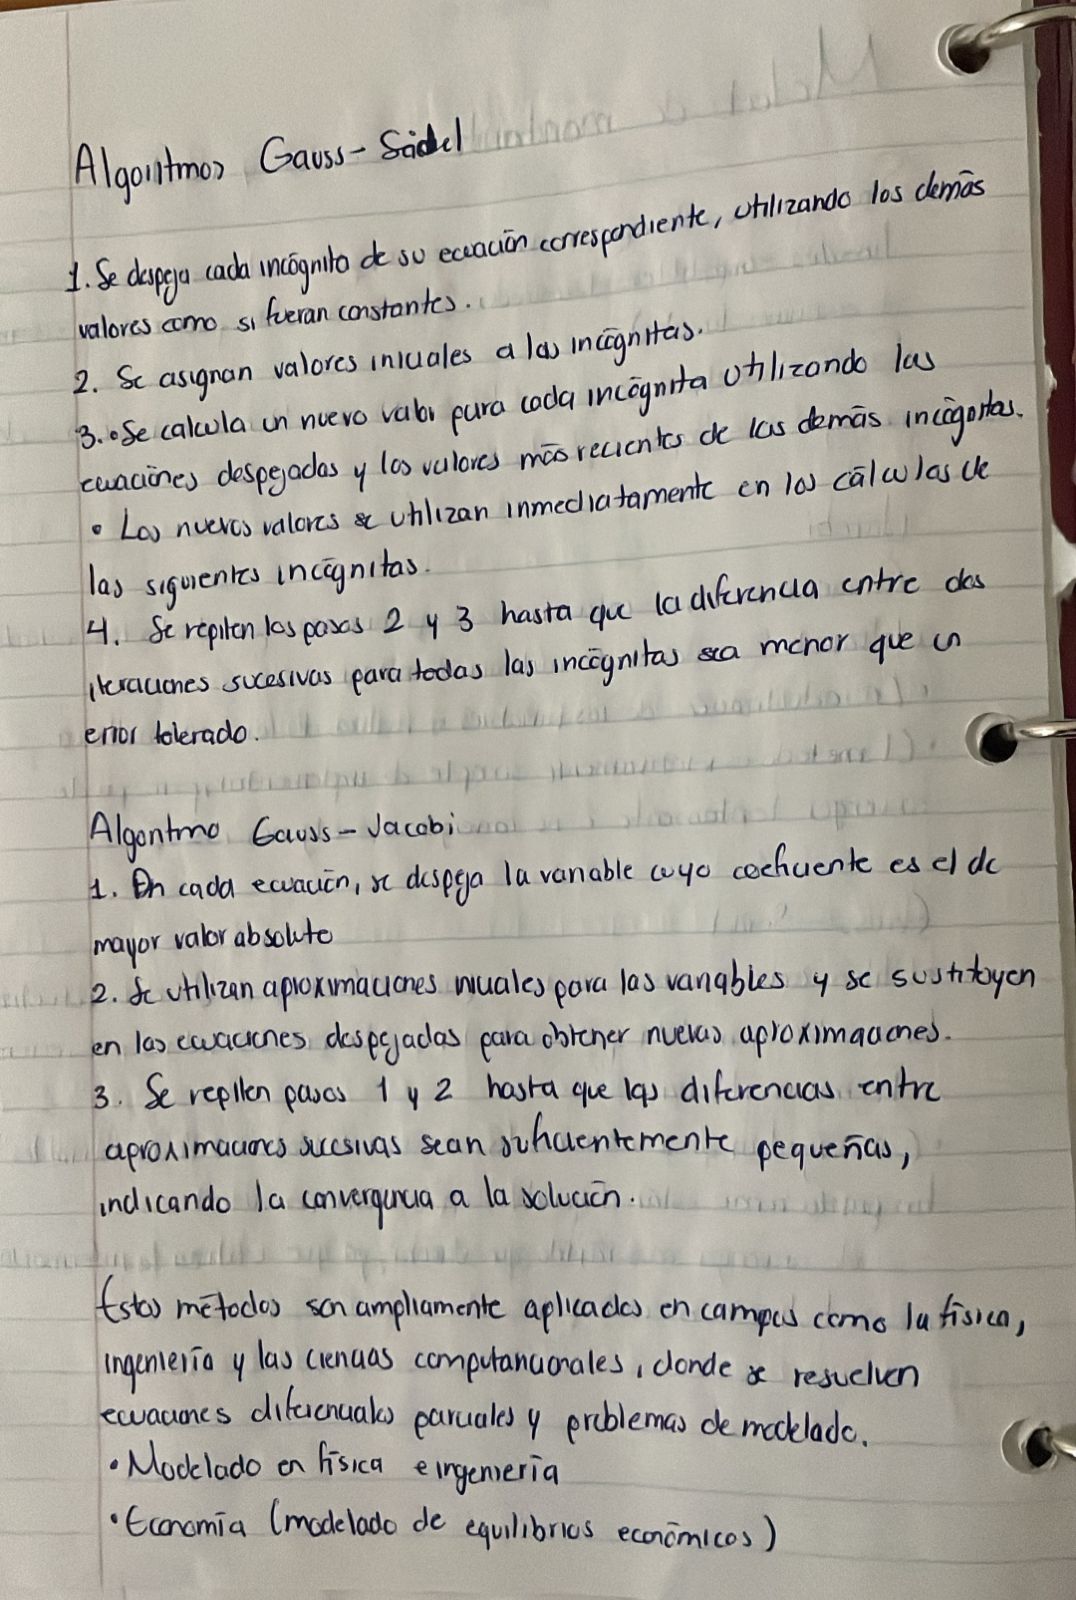 Algoritmos Gauss-Seidel
1. Se despeja cada incógnita de su ecuación correspondiente, utilizando los demás
valores como si fueran constantes.
2. Se asignan valores iniciales a las incógnitas.
3. • Se calcula un nuevo valor para cada incógnita utilizando las
ecuaciones despejadas y los valores más recientes de las demás incógnitas.
• Los nuevos valores se utilizan inmediatamente en los cálculos de
las siguientes incógnitas.
4. Se repiten los pasos 2 y 3 hasta que la diferencia entre dos
iteraciones sucesivas para todas las incógnitas sea menor que un
error tolerado.
Algoritmo Gauss-Jacobi
1. En cada ecuación, se despeja la variable cuyo coeficiente es el de
mayor valor absoluto
2. Se utilizan aproximaciones iniciales para las variables y se sustituyen
en las ecuaciones despejadas para obtener nuevas aproximaciones.
3. Se repiten pasos 1 y 2 hasta que las diferencias entre
aproximaciones sucesivas sean suficientemente pequeñas,
indicando la convergencia a la solución.
Estos métodos son ampliamente aplicados en campos como la física,
ingeniería y las ciencias computacionales, donde se resuelven
ecuaciones diferenciales parciales y problemas de modelado.
• Modelado en física e ingeniería
• Economía (modelado de equilibrios económicos)